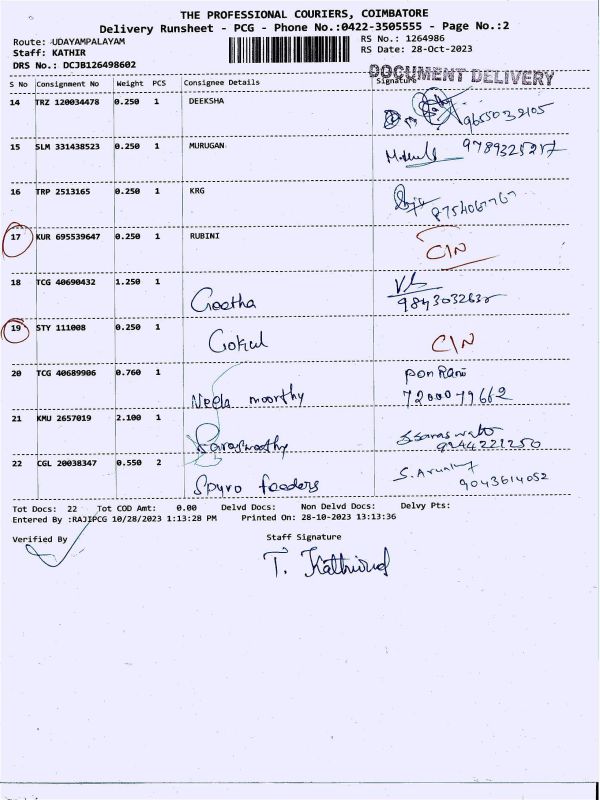 THE PROFESSIONAL COURIERS, COIMBATORE
Delivery Runsheet - PCG - Phone No.:0422-3505555 - Page No.:2
Route: UDAYAMPALAYAM RS No.: 1264986
Staff: KATHIR RS Date: 28-Oct-2023
DRS No.: DCJB126498602
DOCUMENT DELIVERY
S No Consignment No Weight PCS Consignee Details Signature
14 TRZ 120034478 0.250 1 DEEKSHA
15 SLM 331438523 0.250 1 MURUGAN
16 TRP 2513165 0.250 1 KRG
17 KUR 695539647 0.250 1 RUBINI CIN
18 TCG 40690432 1.250 1 Geetha
19 STY 111008 0.250 1 Gokul CIN
20 TCG 40689906 0.760 1 Neela moorthy pon Rani
7200079662
21 KMU 2657019 2.100 1 Saraswathy
9244221250
22 CGL 20038347 0.550 2 Spyro feeders
9043614052
Tot Docs: 22 Tot COD Amt: 0.00 Delvd Docs: Non Delvd Docs: Delvy Pts:
Entered By :RAJIPCG 10/28/2023 1:13:28 PM Printed On: 28-10-2023 13:13:36
Verified By Staff Signature